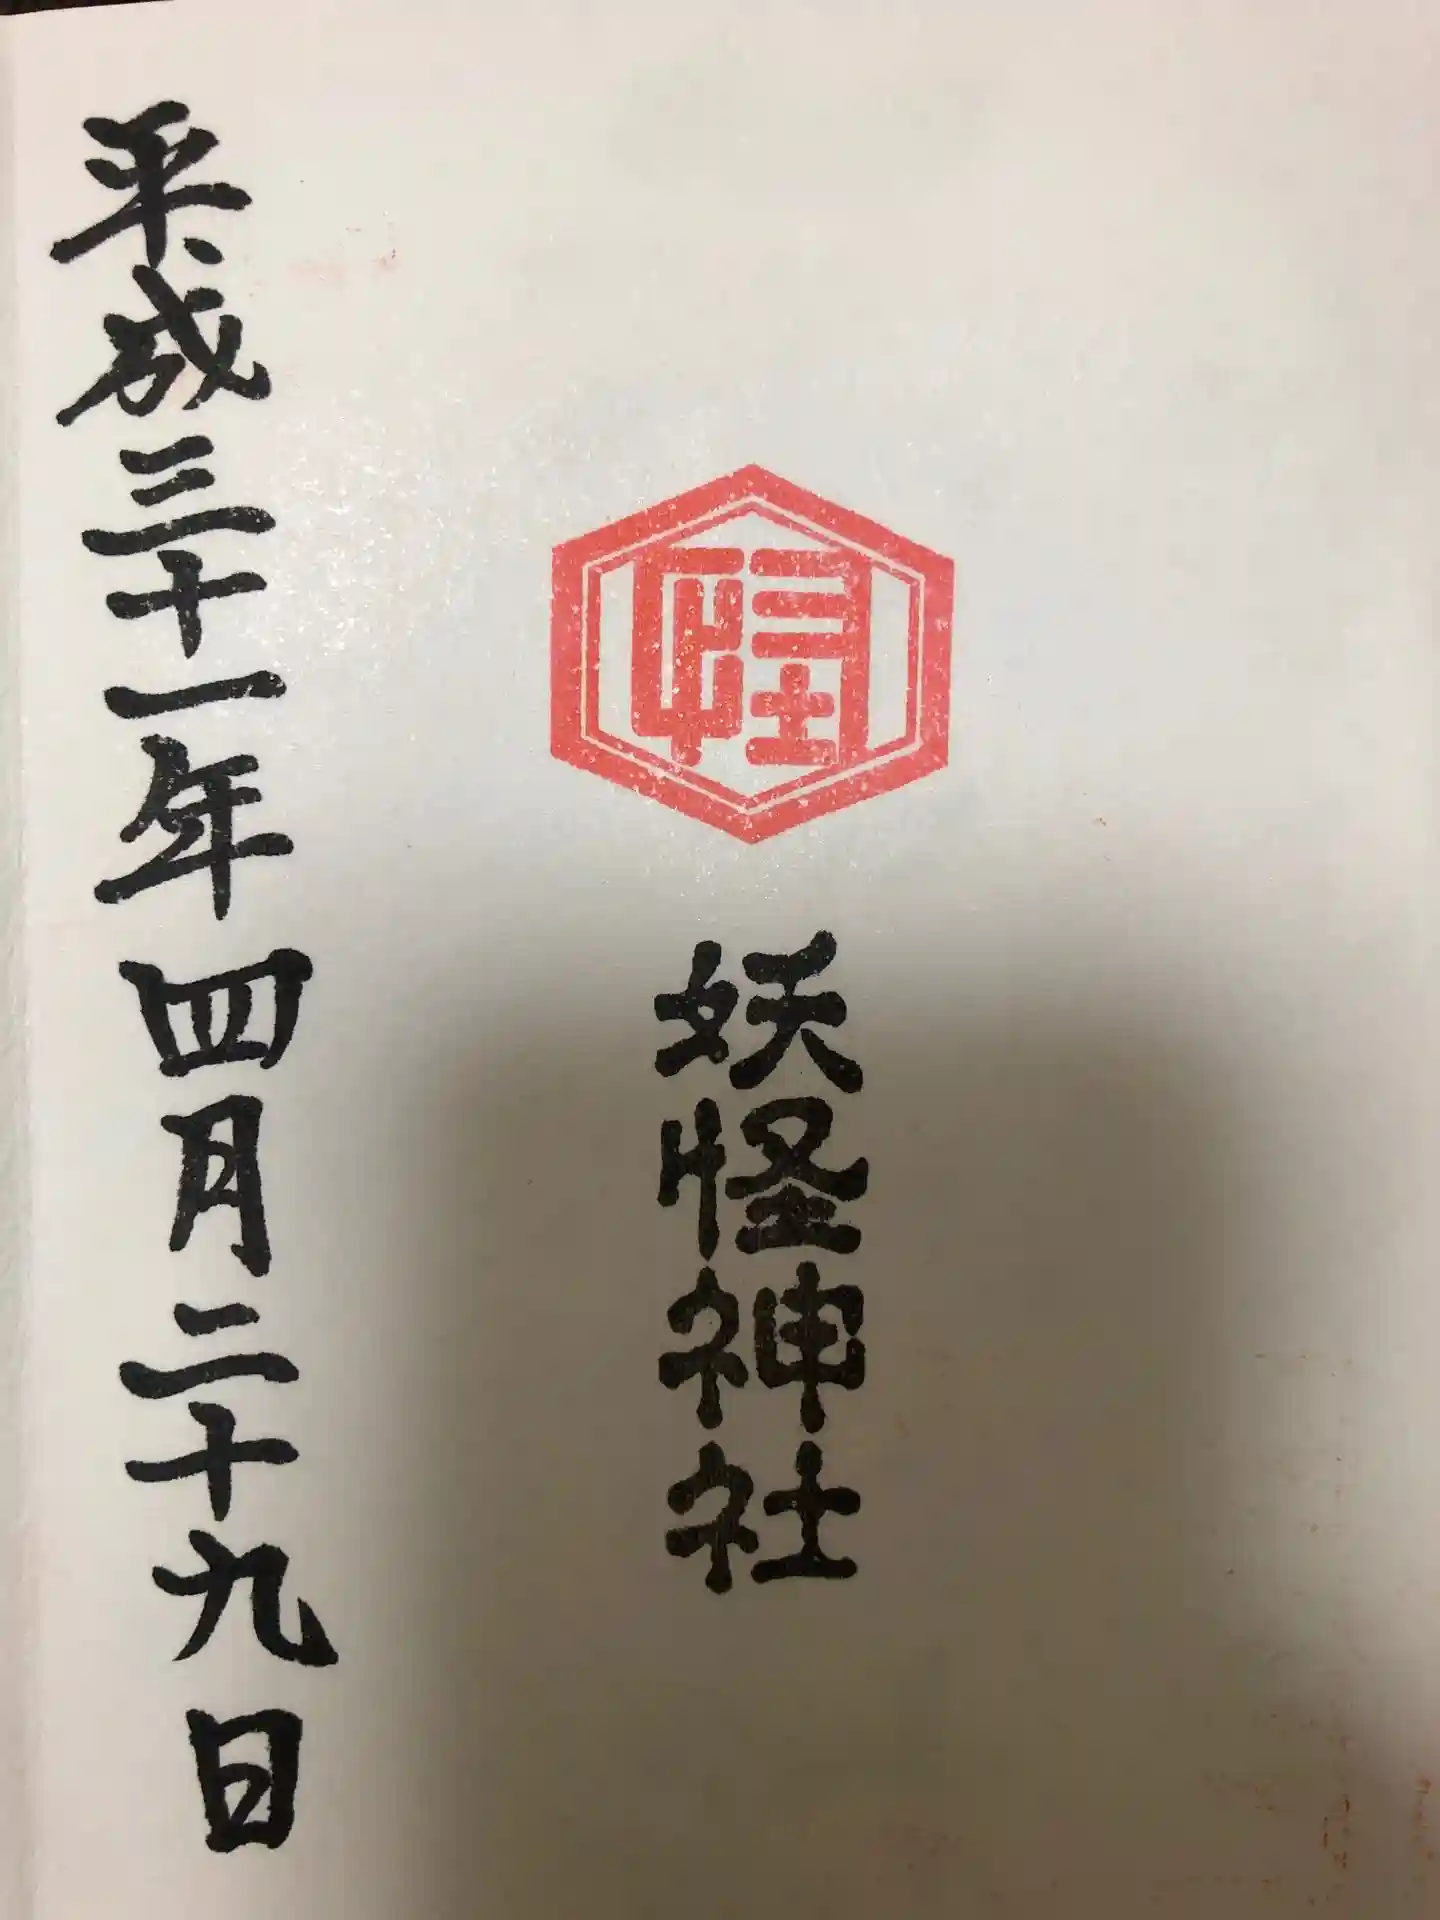 妖怪神社
平成三十一年四月二十九日